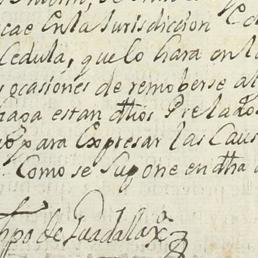 cae En la Jurisdiccion
Cedula, que lo hara en l
ocasiones de remoberse al
haga estan dhos Prelados
para Expresar las Caus
Como se Supone en dha
hpo de Guadalaxa